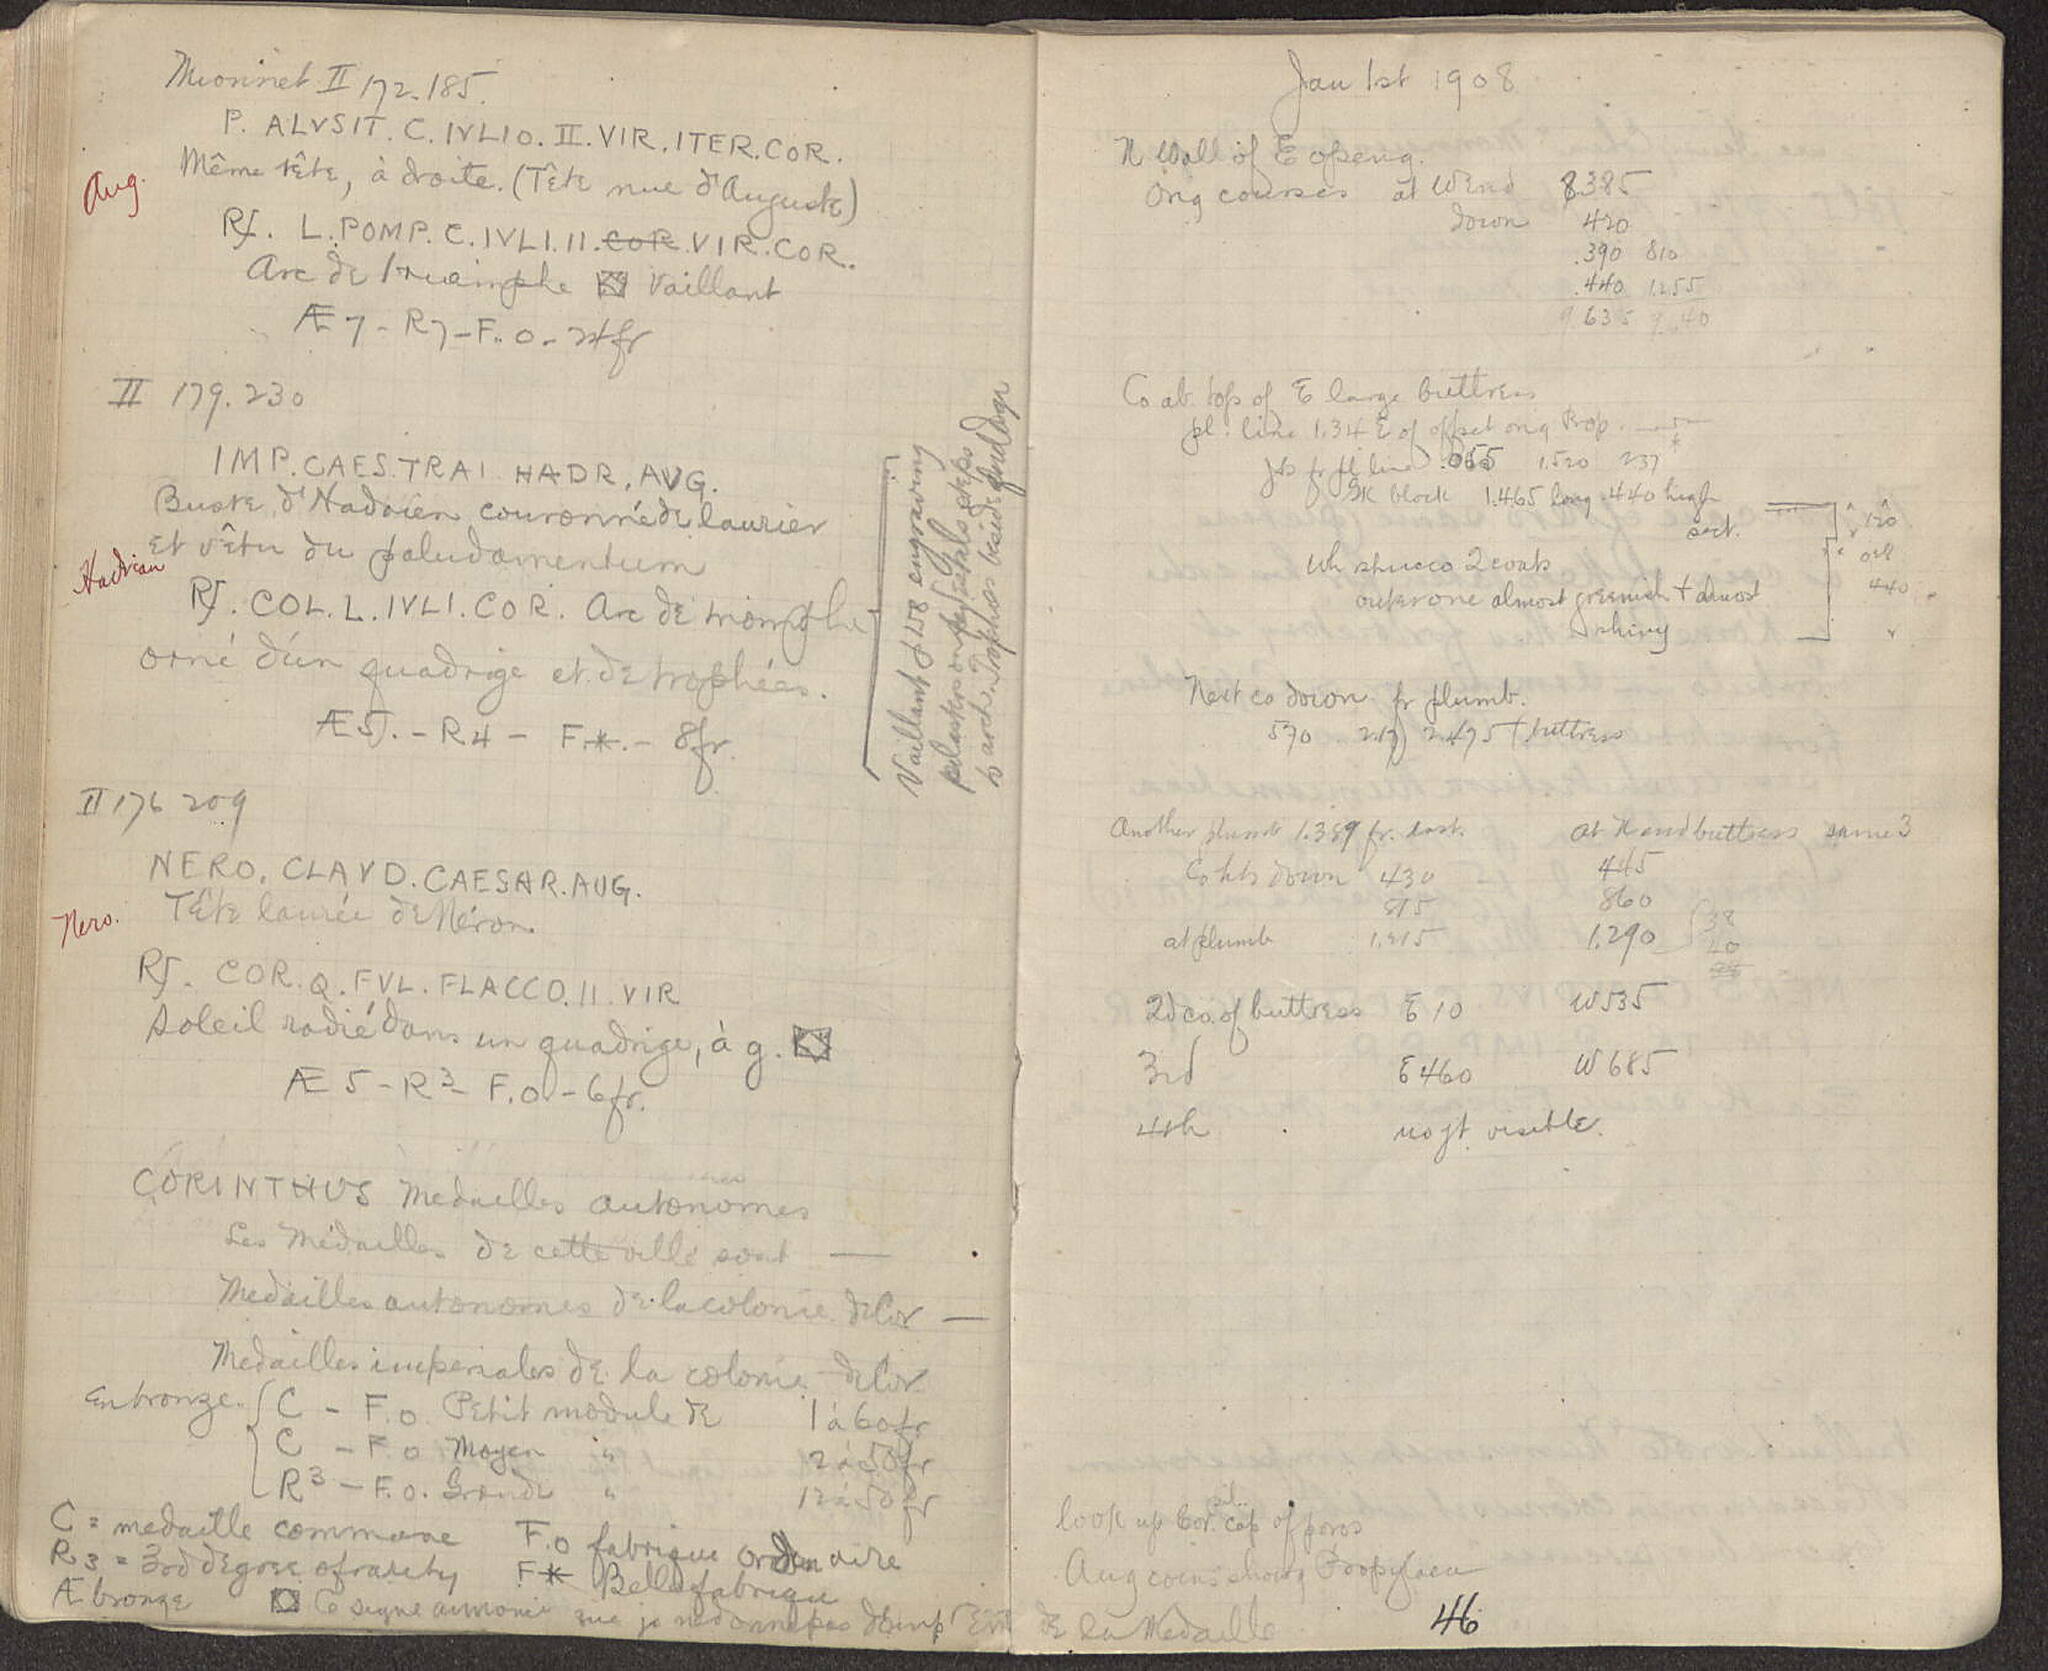 Mionnet II 172.185.
P. ALVSIT. C. IVLIO. II. VIR. ITER. COR.
Même tête, à droite. (Tête nue d'Auguste)
Aug.
R⁄. L. POMP. C. IVLI. II. COR. VIR. COR.
Arc de triomphe Vaillant
Æ 7 - R 7 - F. o. - 24 fr
II 179. 230
IMP. CAES. TRAI HADR. AVG.
Buste d'Hadrien couronné de laurier
et vêtu du paludamentum
Hadrian
R⁄. COL. L. IVLI. COR. Arc de triomphe
orné d'un quadrige et de trophées.
Æ 5. - R 4 - F.*. - 8 fr.
Vaillant p 158 engraving
pilasters on pedestals steps
to arch. Trophies beside quadriga
II 176 209
NERO. CLAVD. CAESAR. AUG.
Tête laurée de Néron.
Nero.
R⁄. COR. Q. FVL. FLACCO. II. VIR
Soleil radié dans un quadrige, à g.
Æ 5 - R 3 - F. o - 6 fr.
CORINTHUS Medailles autonomes
Les Médailles de cette ville sont —
Medailles autonomes de la colonie de Cor —
Medailles imperiales de la colonie de Cor.
En bronze. C - F. o. Petit module de 1 à 60 fr
C - F. o Moyen " 2 à 50 fr
R 3 - F. o. Grande " 12 à 50 fr
C = medaille commune F. o fabrique ordinaire
R 3 = 3rd degree of rarity F* Belle fabrique
Æ bronze Ce signe annonce que je ne donne pas d'emp
de la Medaille
Jan 1st 1908
N Wall of E openg.
Orig courses at W end 8.385
down 420
.390 810
.440 1.255
9.635 9.640
Co at top of E large buttress
pl. line 1.34 E of offset orig Prop.
jts fr pl line .055 1.520 237
Gk block 1.465 long .440 high
sect.
120
440
Wh stucco 2 coats
outer one almost greenish + almost
shiny
Next co down fr plumb.
570 2.475 + buttress
Another plumb 1.389 fr. last. at N end buttress same 3
Co hts down 430 445
815 860
at plumb 1.215 1.290 38
20
2d co. of buttress E 10 W 535
3rd E 460 W 685
4th no jt. visible.
look up Cor. pil. cap of poros
Aug coins showg Propylaea
46